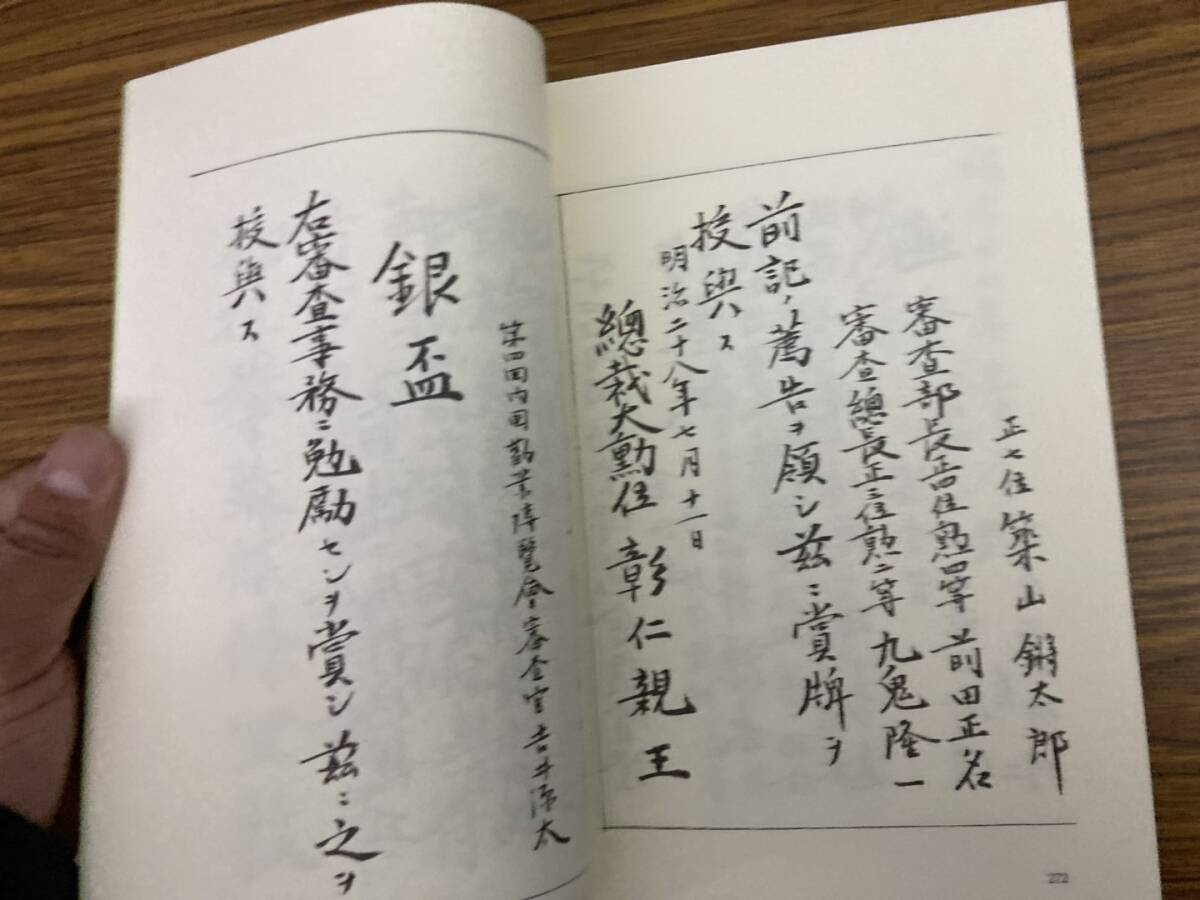 正七位 築山 鏘太郎
審査部長正四位勲四等 前田正名
審査總長正三位勲二等 九鬼隆一
前記ノ薦告ヲ領シ茲ニ賞牌ヲ
授與ス
明治二十八年七月十一日
總裁大勲位 彰仁親王
272
第四回内国勧業博覧會審査官吉井源太
銀盃
右審査事務ニ勉勵センヲ賞シ茲ニ之ヲ
授與ス